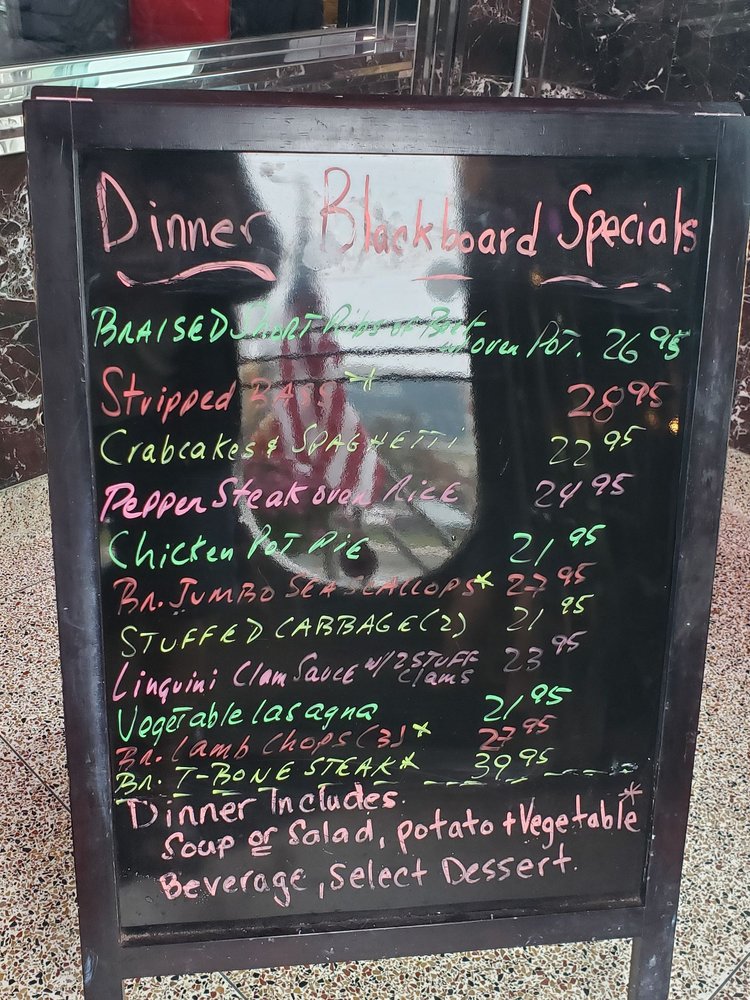 Dinner Blackboard Specials
BRAISED Short Ribs of Beef
w/ Oven POT. 26 95
Stripped BASS * 28 95
Crabcakes & SPAGHETTI 22 95
Pepper Steak over RICE 24 95
Chicken POT PIE 21 95
BR. JUMBO SEA SCALLOPS * 27 95
STUFFED CABBAGE (2) 21 95
Linguini Clam Sauce w/ 2 STUFF 23 95
clams
Vegetable lasagna 21 95
Br. Lamb CHOPS (3) * 27 95
BR. T-BONE STEAK * 39 95
Dinner Includes.
Soup or Salad, potato + Vegetable *
Beverage, Select Dessert.